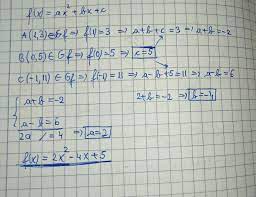 f(x)=ax²+bx+c
A(1,3)∈Gf ⇒ f(1)=3 ⇒ a+b+c=3 ⇒ a+b=-2
B(0,5)∈Gf ⇒ f(0)=5 ⇒ c=5
C(-1,11)∈Gf ⇒ f(-1)=11 ⇒ a-b+5=11 ⇒ a-b=6
{ a+b=-2
a-b=6
2+b=-2 ⇒ b=-4
2a / =4 ⇒ a=2
f(x)=2x²-4x+5